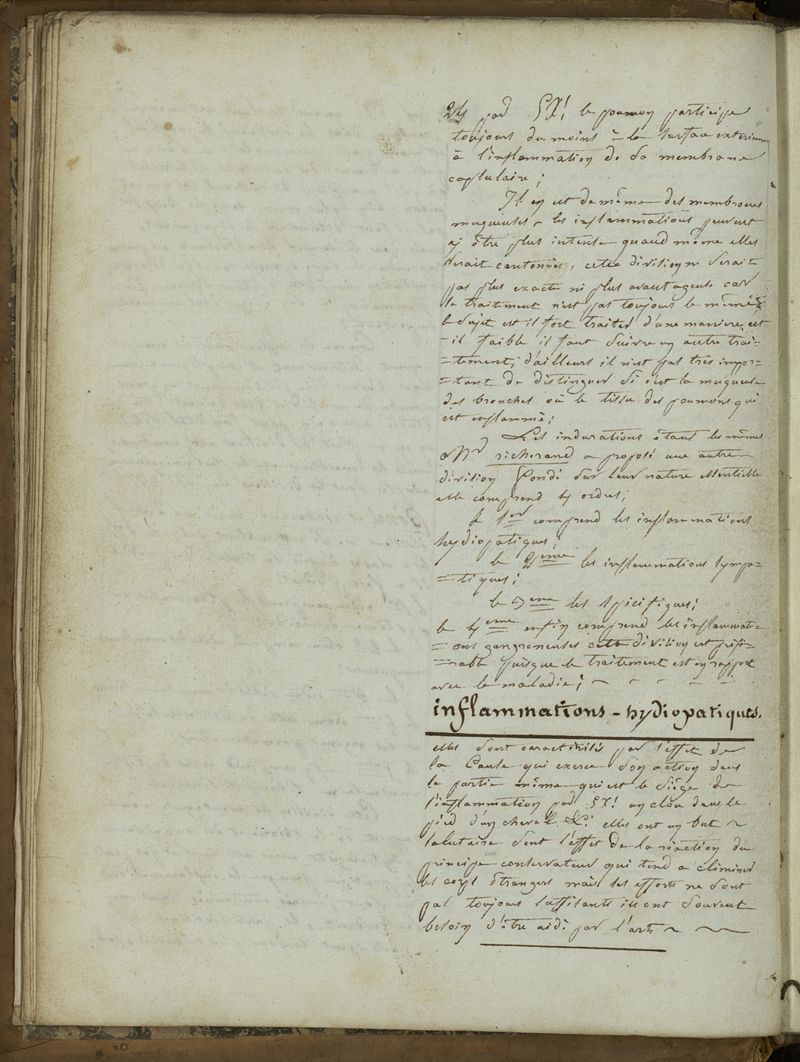 par EX! le poumon participe
toujours du moins à la surface exterieure
à l'inflammation de sa membrane
capsulaire;
Il en est de même des membranes
muqueuses les inflammations peuvent
y être plus intense quand même elles
serait cantonnés, cette division serait
pas plus exacte ni plus avantageuse car
le traitement n'est pas toujours le même
le sujet est il fort traiter d'une maniere, est
-il faible il faut suivre un autre trai=
=tement; d'ailleurs il n'est pas très impor=
=tant de distinguer si c'est la muqueuse
des bronches où le tissu des poumons qui
est enflammé;
Les indurations étant les mêmes
Mr richerand a proposé une autre
division fondé sur leur nature essentielle
elle comprend 4 ordres;
le 1er comprend les inflammations
hydiopatiques;
le 2eme les inflammations sympa=
=tiques;
le 3eme les spicifiques;
le 4eme enfin comprend les inflammati=
=ons gangreneuses cette division est préfé=
=rable puisque le traitement est en rapport
avec la maladie;
inflammations - hydiopatiques.
elles sont caractérisés par l'effet de
la Cause qui exerce son action dans
la partie même qui est le siège de
l'inflammation par EX! un clou dans le
pied d'un cheval &! elles ont un but
salutaire sont l'effet de la réaction du
principe conservateur qui tend a éliminer
les corps étrangers mais ses efforts ne sont
pas toujours suffisants ils ont souvent
besoin d'être aidé par l'art